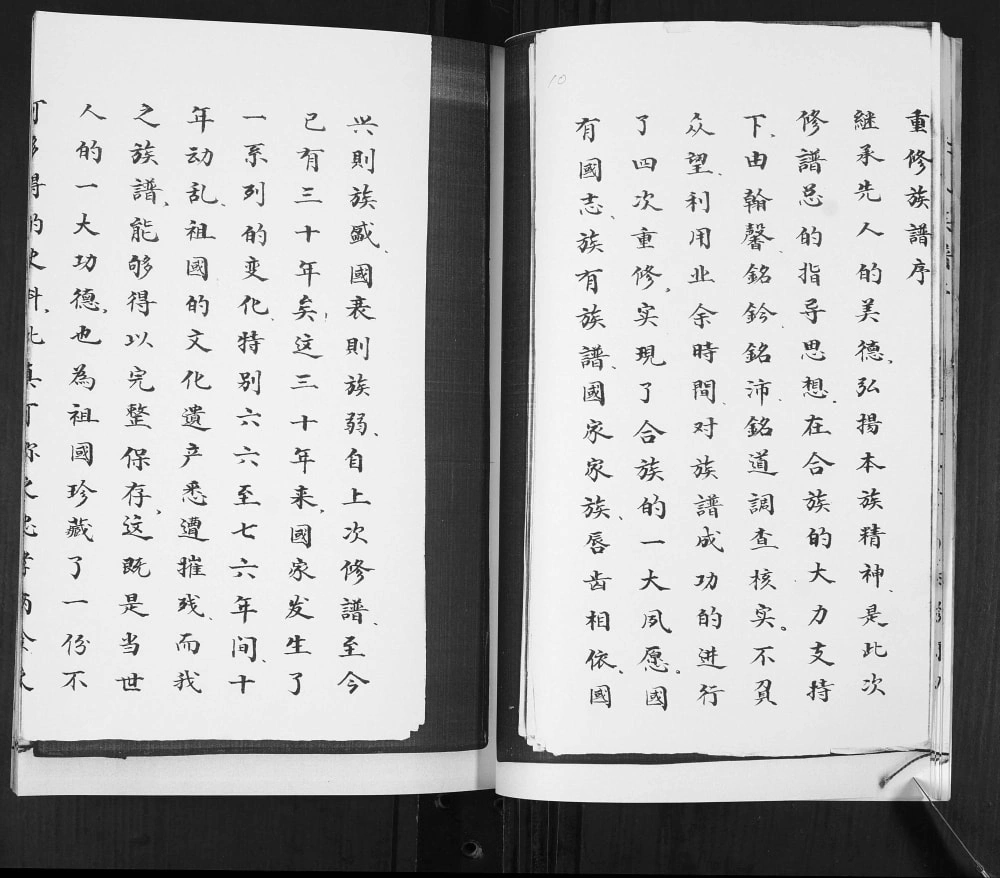 10
重修族譜序
継承先人的美德、弘揚本族精神、是此次
修譜总的指导思想.在合族的大力支持
下、由翰馨、銘鈐、銘沛、銘道調查核实。不負
众望、利用业余時間、对族譜成功的进行
了四次重修，实現了合族的一大夙愿。國
有國志、族有族譜、國家家族、唇齿相依、國
兴則族盛、國衰則族弱、自上次修譜、至今
已有三十年矣，这三十年来，國家发生了
一系列的变化、特别六六至七六年间、十
年动乱、祖國的文化遺产悉遭摧残、而我
之族譜、能够得以完整保存，这既是当世
人的一大功德，也為祖國珍藏了一份不
可多得的史料，此真可称